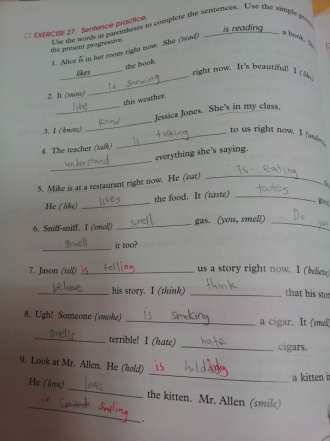 EXERCISE 27. Sentence practice.
Use the words in parentheses to complete the sentences. Use the simple
the present progressive.
1. Alice is in her room right now. She (read) is reading a book.
likes the book.
2. It (snow) is snowing right now. It's beautiful! I (like)
like this weather.
3. I (know) know Jessica Jones. She's in my class.
4. The teacher (talk) is talking to us right now. I
understand everything she's saying.
5. Mike is at a restaurant right now. He (eat) is eating
He (like) likes the food. It (taste) tastes
6. Sniff-sniff. I (smell) smell gas. (you, smell) Do
smell it too?
7. Jason (tell) is telling us a story right now. I (believe)
believe his story. I (think) think that his
8. Ugh! Someone (smoke) is smoking a cigar. It (smell)
smells terrible! I (hate) hate cigars.
9. Look at Mr. Allen. He (hold) is holding a kitten
He (love) loves the kitten. Mr. Allen (smile)
is smiling.